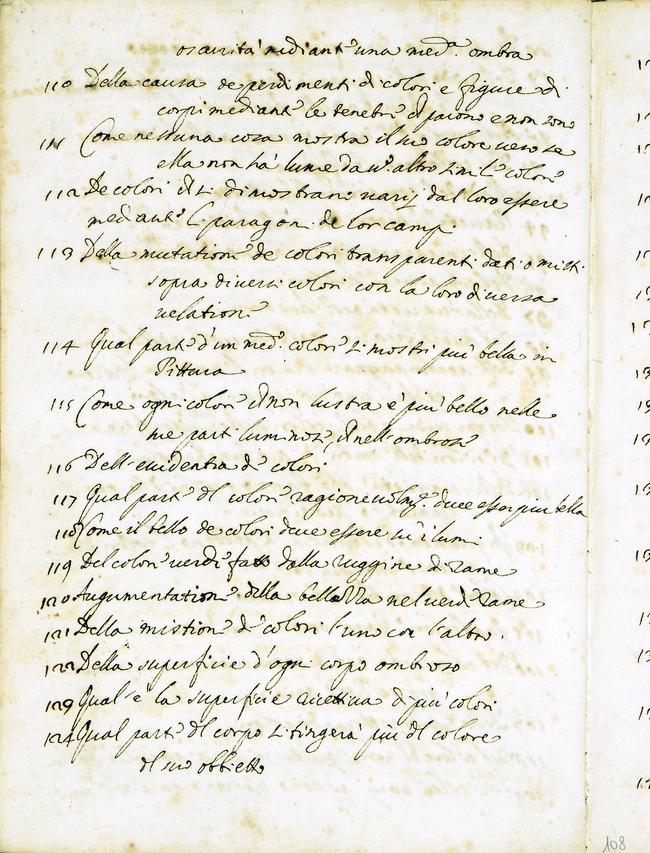 oscurità mediant.e una med.a ombra
110 Della causa de perdimenti di colori e figure di
corpi mediant.e le tenebre ch paiono e non sono
111 Come nessuna cosa mostra il suo colore vero se
ella non hà lume da un altro simil colore
112 De colori ch si dimostrano varij dal loro essere
mediant.e li paragoni de lor campi
113 Della mutatione de colori transparenti dati o misti
sopra diversi colori con la loro diversa
relatione
114 Qual parte d'un med.o colore si mostri più bella in
Pittura
115 Come ogni colore ch non lustra è più bello nelle
sue parti luminose, ch nell'ombrose
116 Dell'evidentia de colori
117 Qual parte del colore ragionevolm.te deve esser piu bella
118 Come il bello de colori deve essere ne i lumi
119 Del colore verde fatto dalla ruggine di rame
120 Augumentatione della bellezza nel verde rame
121 Della mistione de colori l'uno con l'altro.
122 Della superficie d'ogni corpo ombroso
123 Qual'è la superficie ricettiva di più colori
124 Qual parte del corpo si tingerà più del colore
del suo obbietto
108